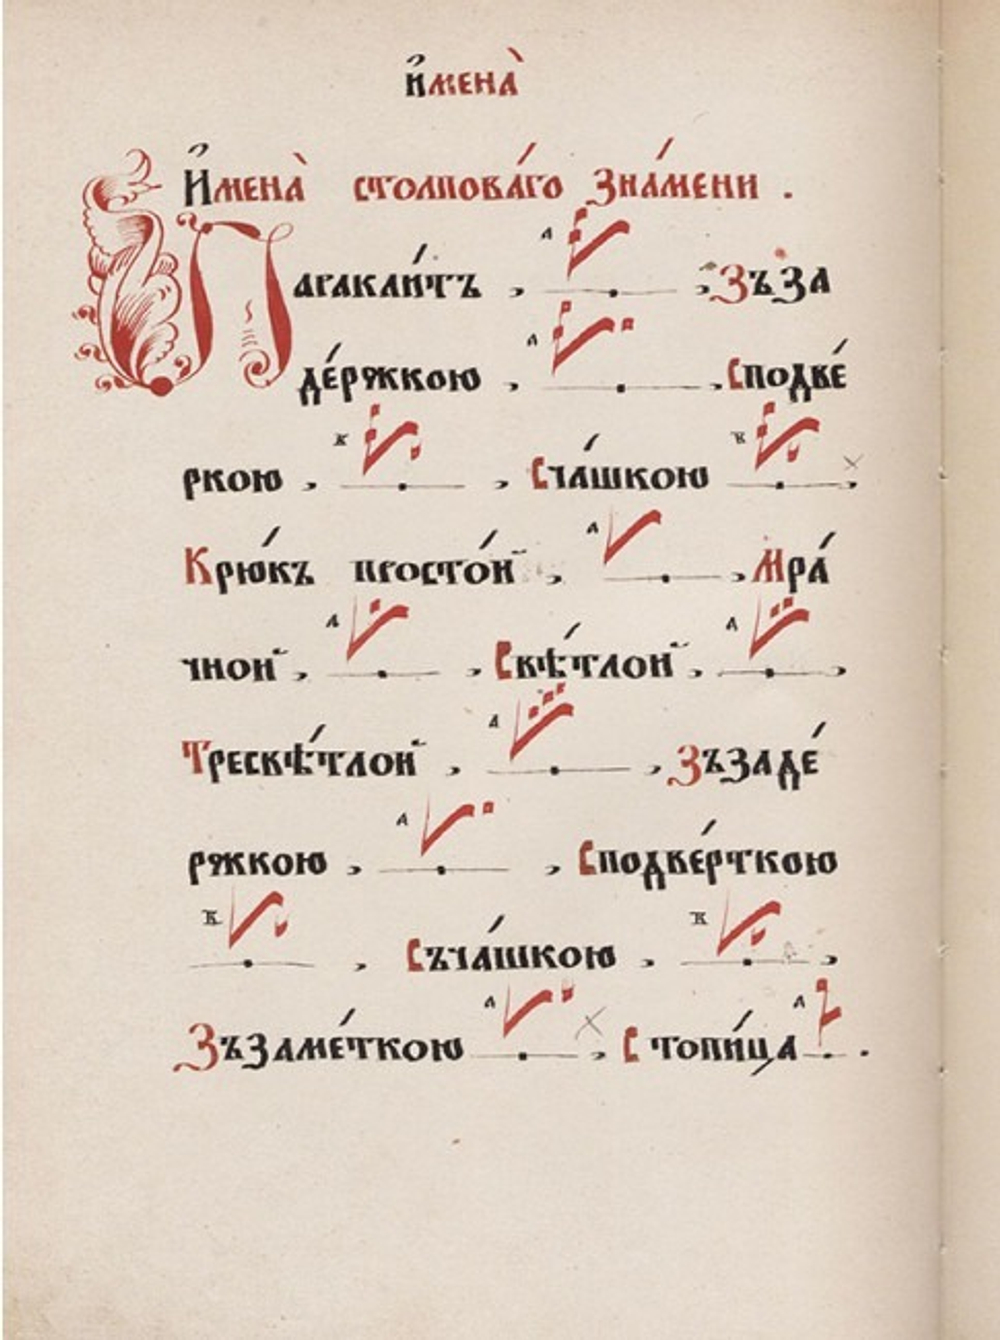 И҆мена̀
И҆мена̀ столпова́го Зна́мени .
Параkли́тъ , л , Зъза
де́ржкою , л , Сподве́
рткою , в , Сча́шкою в ,
Крю́къ просто́й , л , Мра́
чной , л , Свѣ́тлой , л ,
Тресвѣ́тлой , л , Зъзаде́
ржкою , л , Сподве́рткою
в , Съча́шкою , в ,
Зъзаме́ткою л , Стопи́ца л .